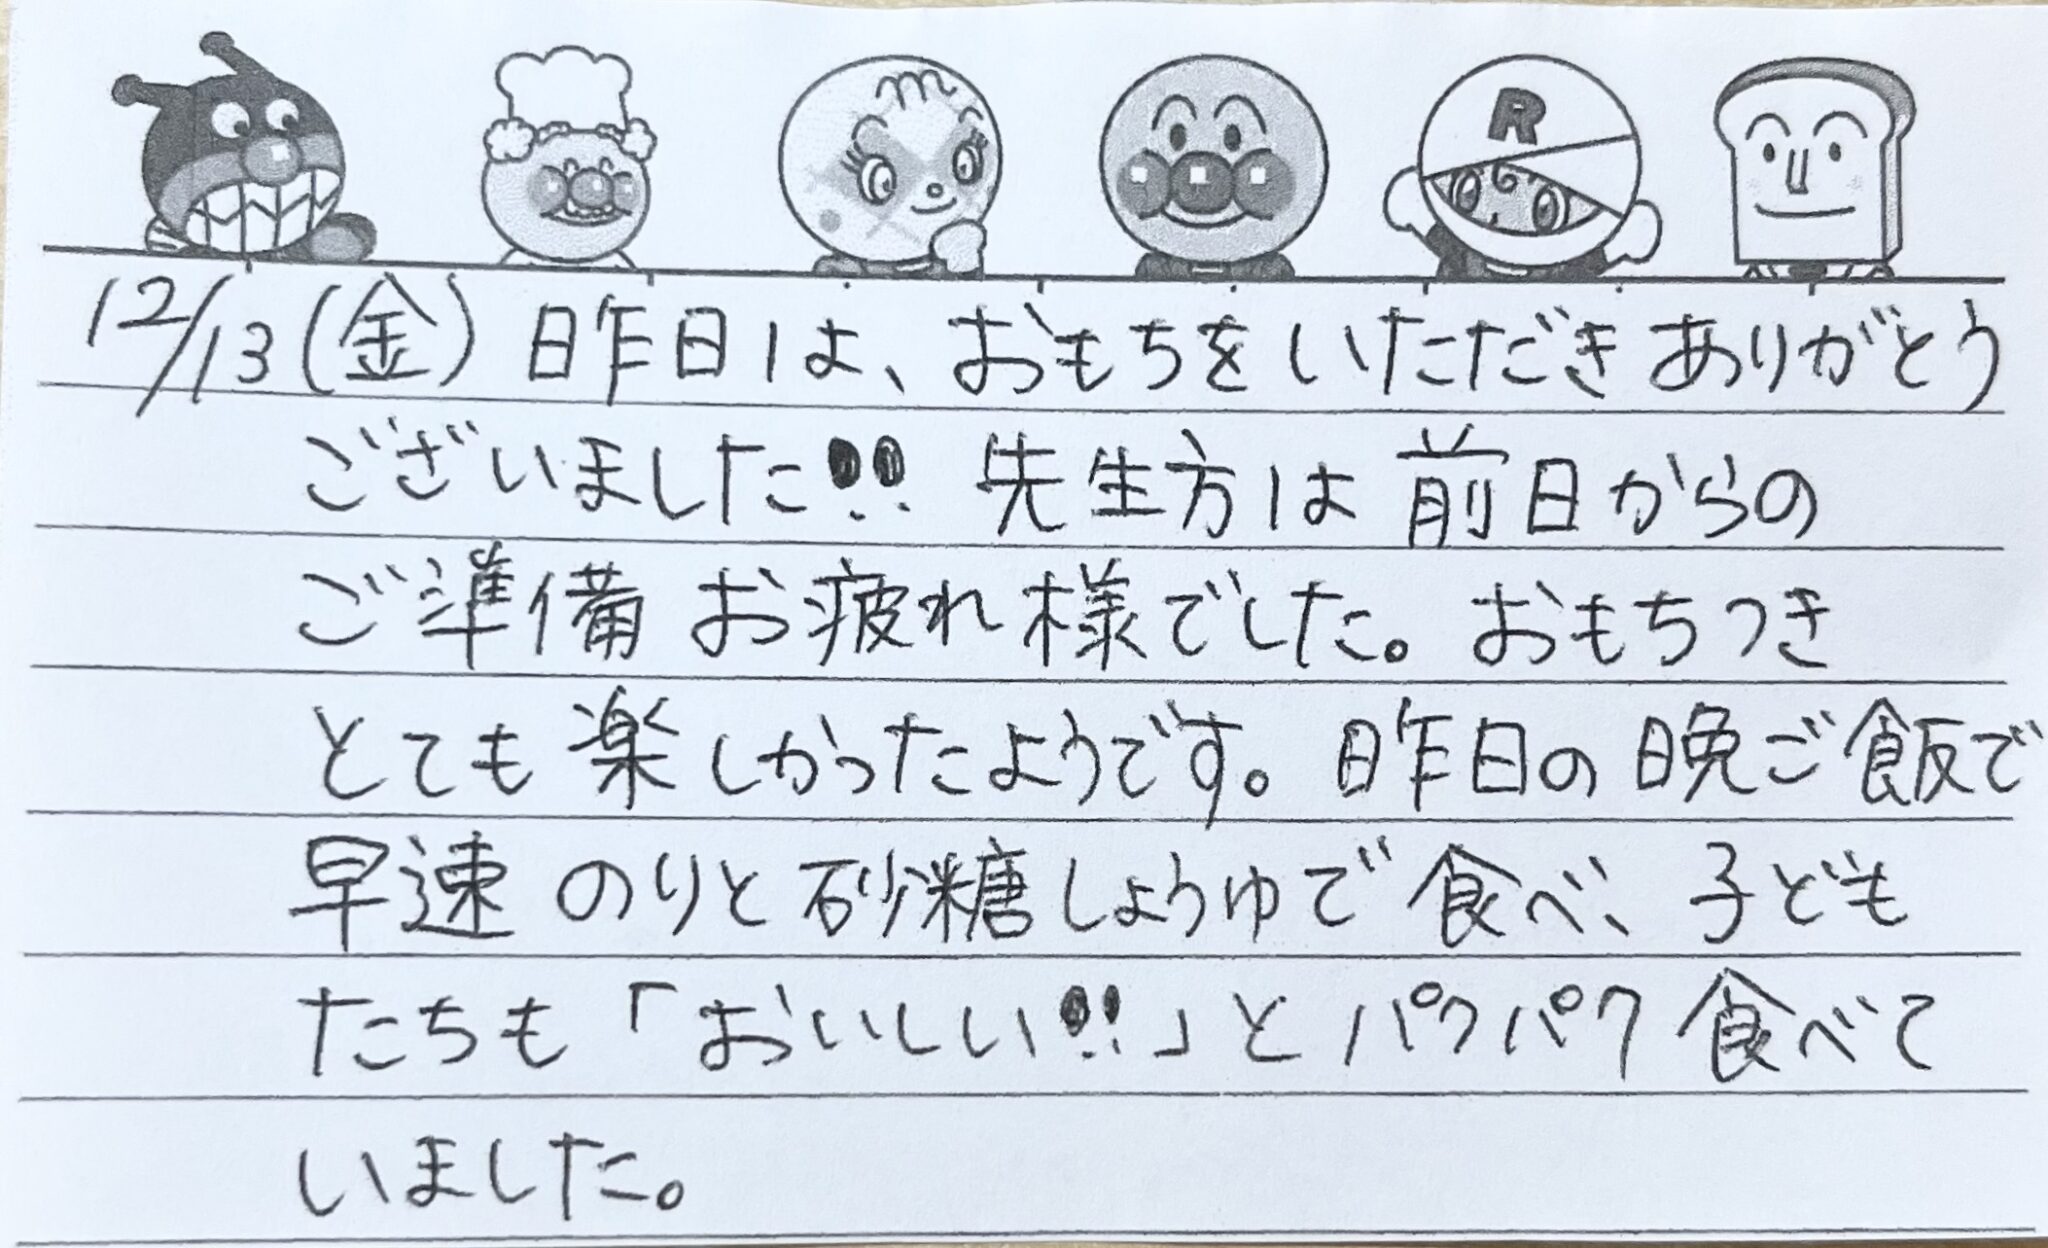 R
12/13(金) 昨日は、おもちをいただきありがとう
ございました!! 先生方は前日からの
ご準備 お疲れ様でした。おもちつき
とても楽しかったようです。昨日の晩ご飯で
早速 のりと砂糖しょうゆで食べ、子ども
たちも「おいしい!!」とパクパク食べて
いました。